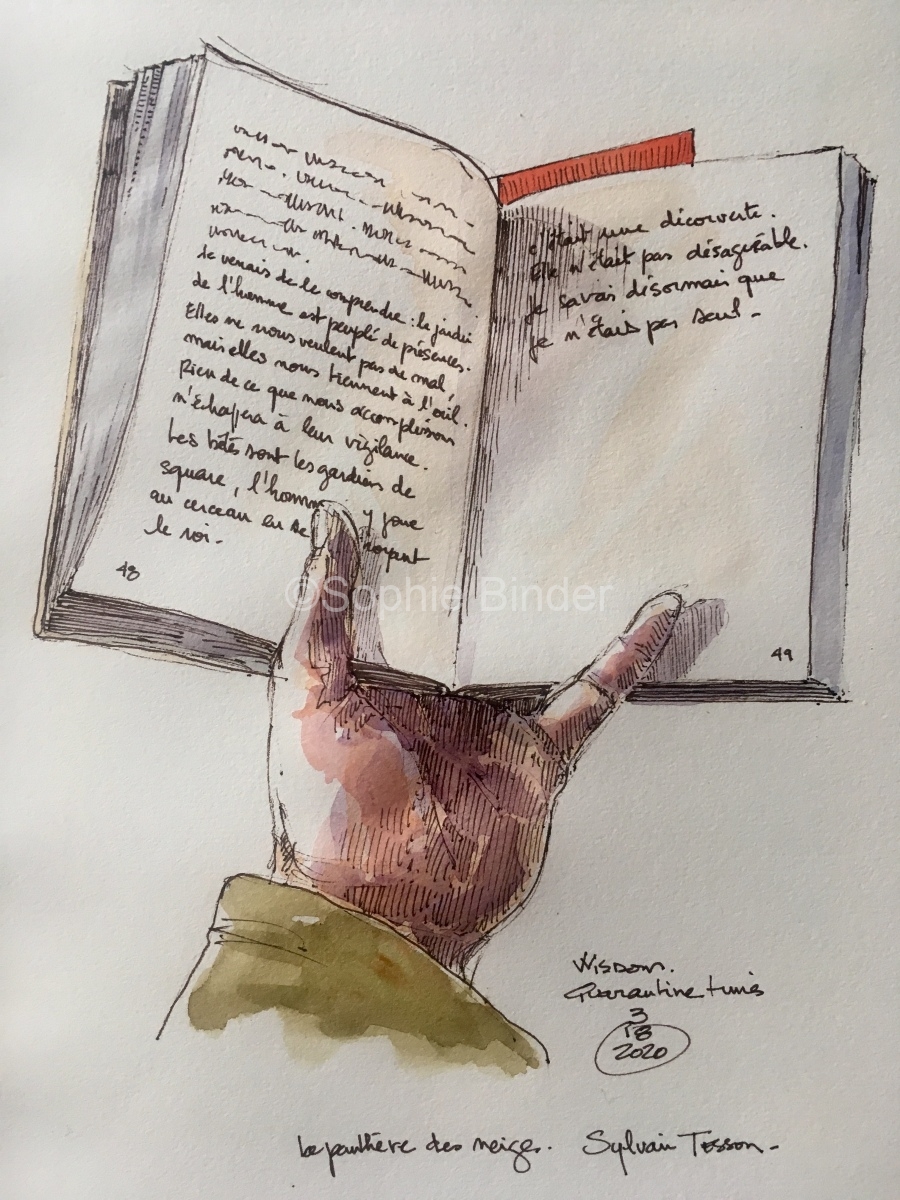 Je venais de le comprendre : le jardin
de l'homme est peuplé de présences.
Elles ne nous veulent pas de mal,
mais elles nous tiennent à l'œil.
Rien de ce que nous accomplissons
n'échappera à leur vigilance.
Les bêtes sont les gardiens de
square, l'homme y joue
au cerceau en se croyant
le roi.
48
c'était une découverte.
Elle n'était pas désagréable.
Je savais désormais que
je n'étais pas seul.
49
©Sophie Binder
Wisdom.
Quarantine times
3
18
2020
La panthère des neiges. Sylvain Tesson.